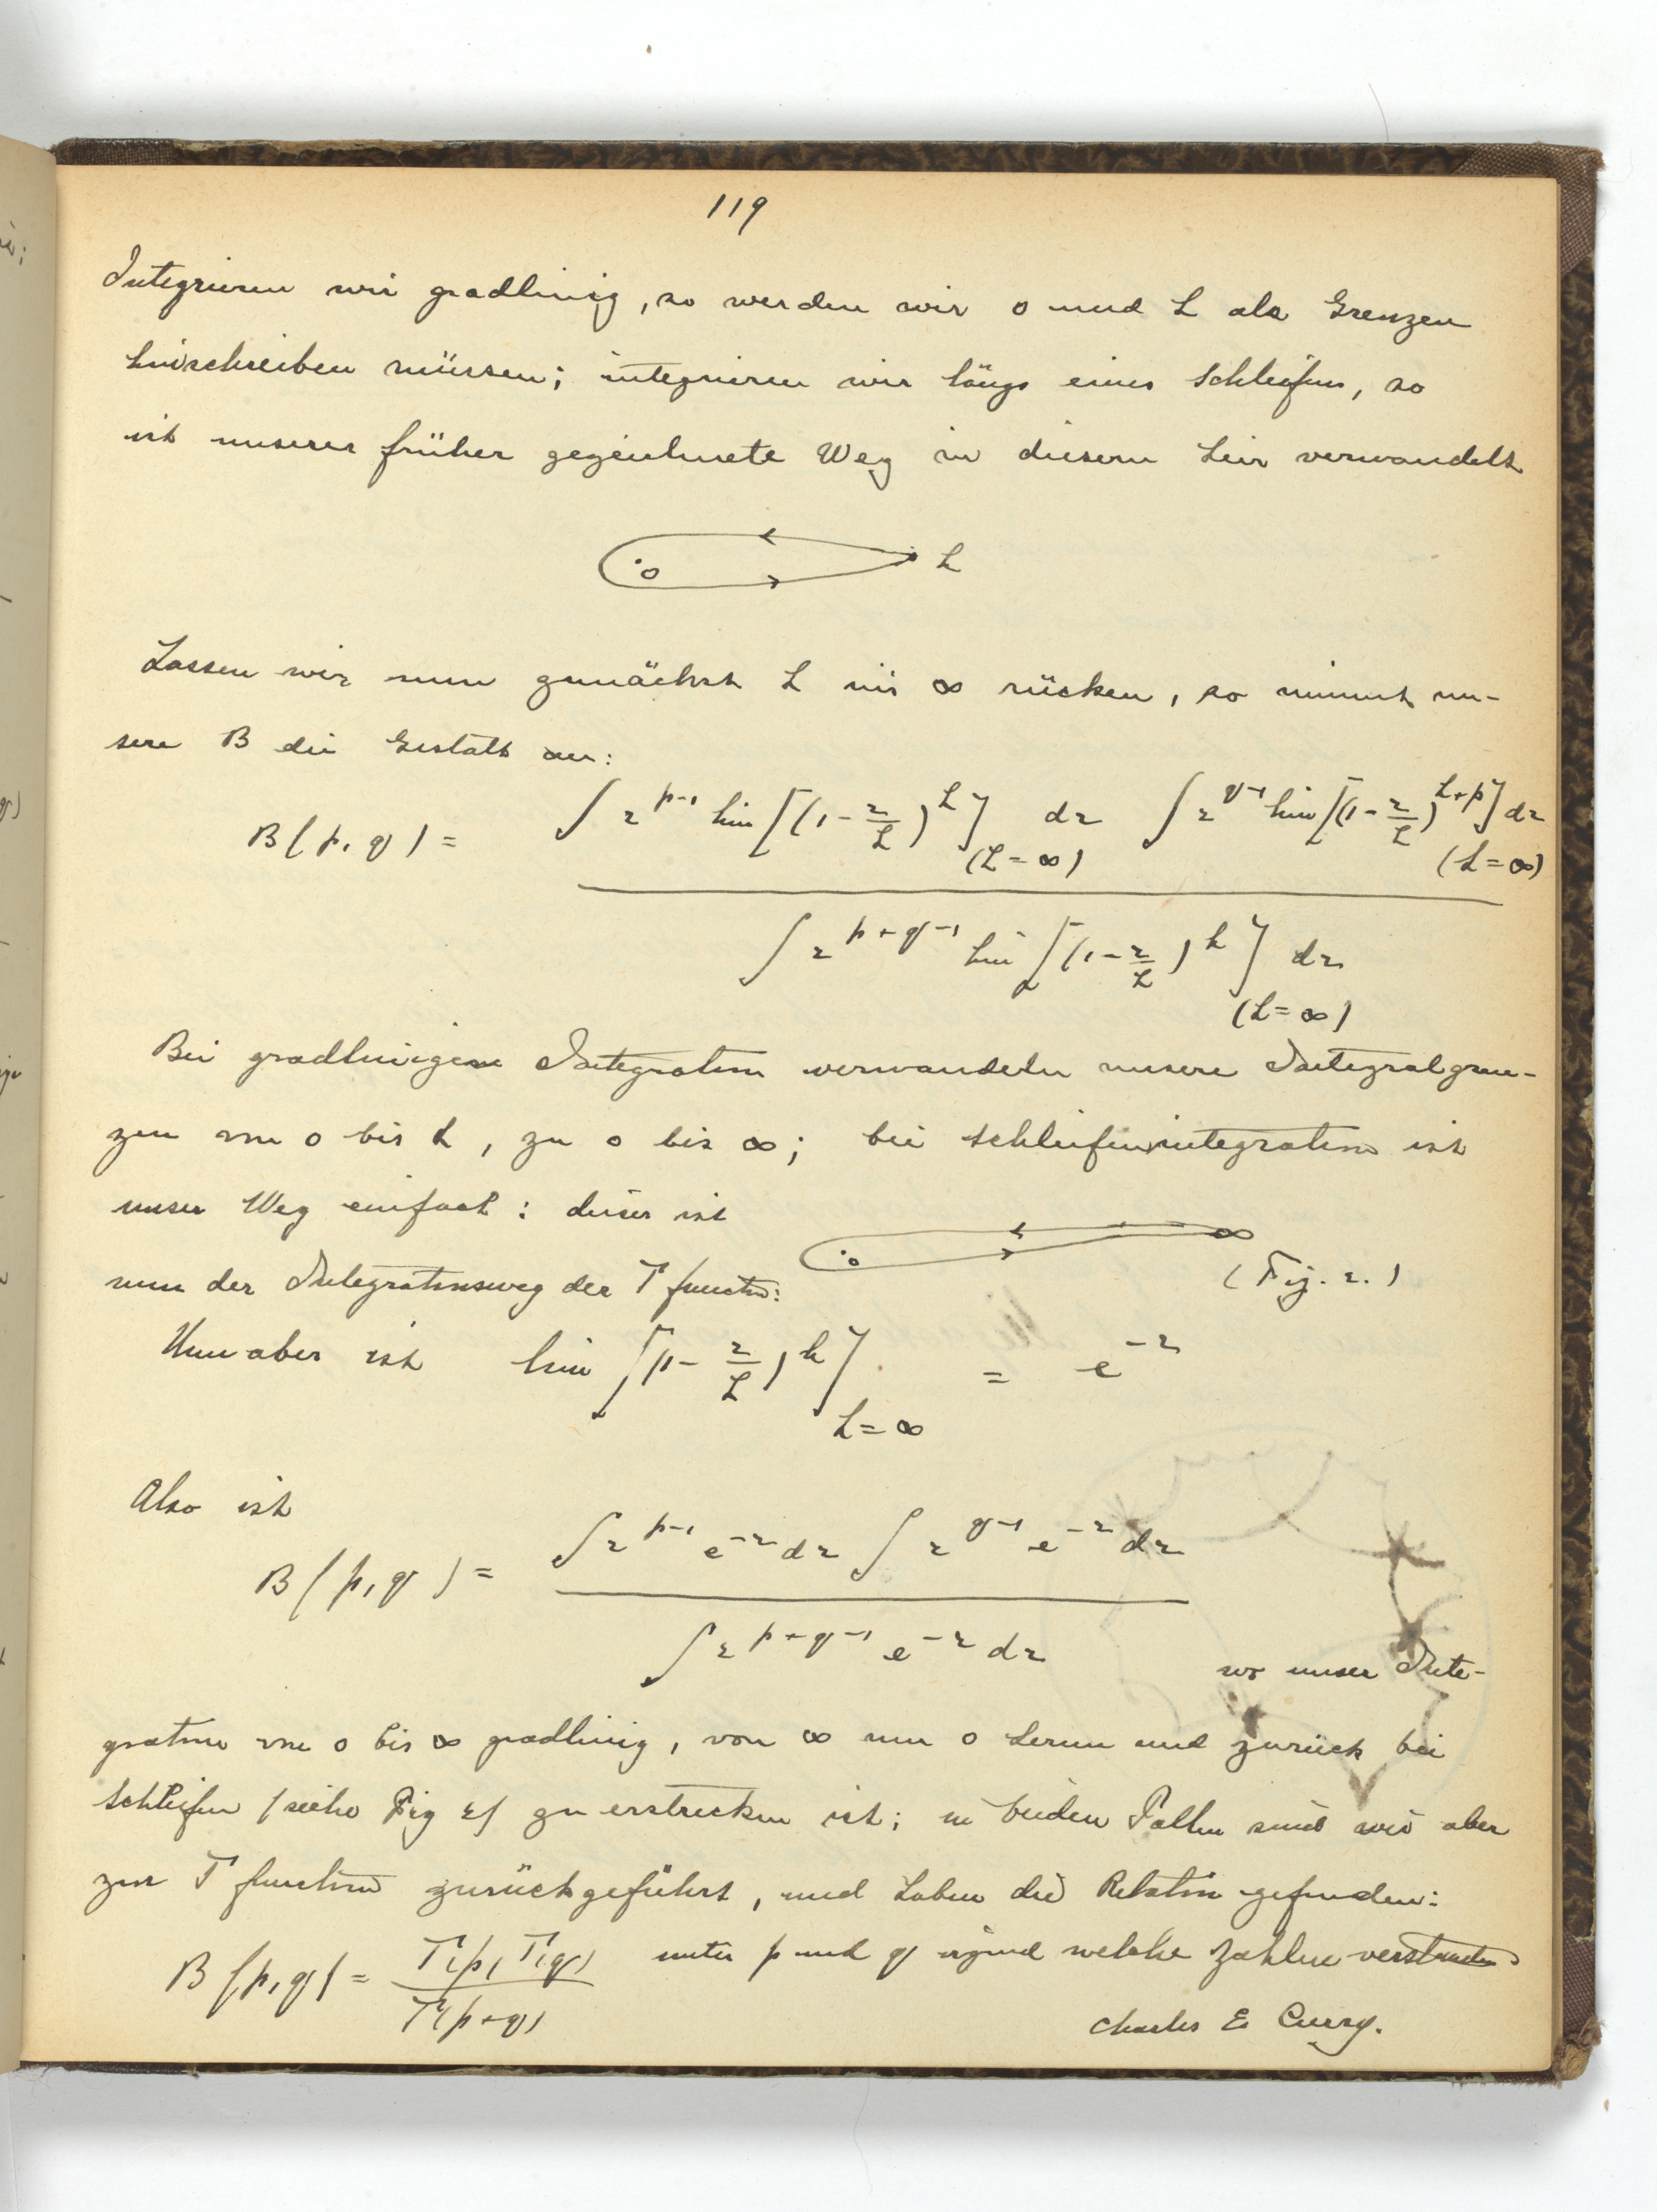 119
Integrieren wir gradlinig, so werden wir 0 und L als Grenzen
hinschreiben müssen; integrieren wir längs eines Schleifen, so
ist unserer früher gezeichnete Weg in diesem hier verwandelt
.0 L
Lassen wir nun zunächst L ins ∞ rücken, so nimmt un-
sere B die Gestalt an:
B(p, q) = ∫ z^{p-1} lim [(1 - z/L)^L] dz (L = ∞) ∫ z^{q-1} lim [(1 - z/L)^{L+p}] dz (L = ∞)
∫ z^{p+q-1} lim [(1 - z/L)^L] dz (L = ∞)
Bei gradlinigen Integration verwandeln unsere Integralgren-
zen von 0 bis L, zu 0 bis ∞; bei Schleifenintegration ist
unser Weg einfach: dieser ist
.0 ∞ (Fig. 2.)
nun der Integrationsweg der Γ function:
Nun aber ist lim [(1 - z/L)^L] L = ∞ = e^{-z}
Also ist
B(p, q) = ∫ z^{p-1} e^{-z} dz ∫ z^{q-1} e^{-z} dz
∫ z^{p+q-1} e^{-z} dz
wo unser Inte-
gration von 0 bis ∞ gradlinig, von ∞ um 0 herum und zurück bei
Schleifen (siehe Fig 2) zu erstrecken ist; in beiden Fallen sind wir aber
zur Γ function zurückgeführt, und haben die Relation gefunden:
B(p, q) = Γ(p) Γ(q) / Γ(p+q) unter p und q irgend welche Zahlen verstanden
Charles E. Curry.